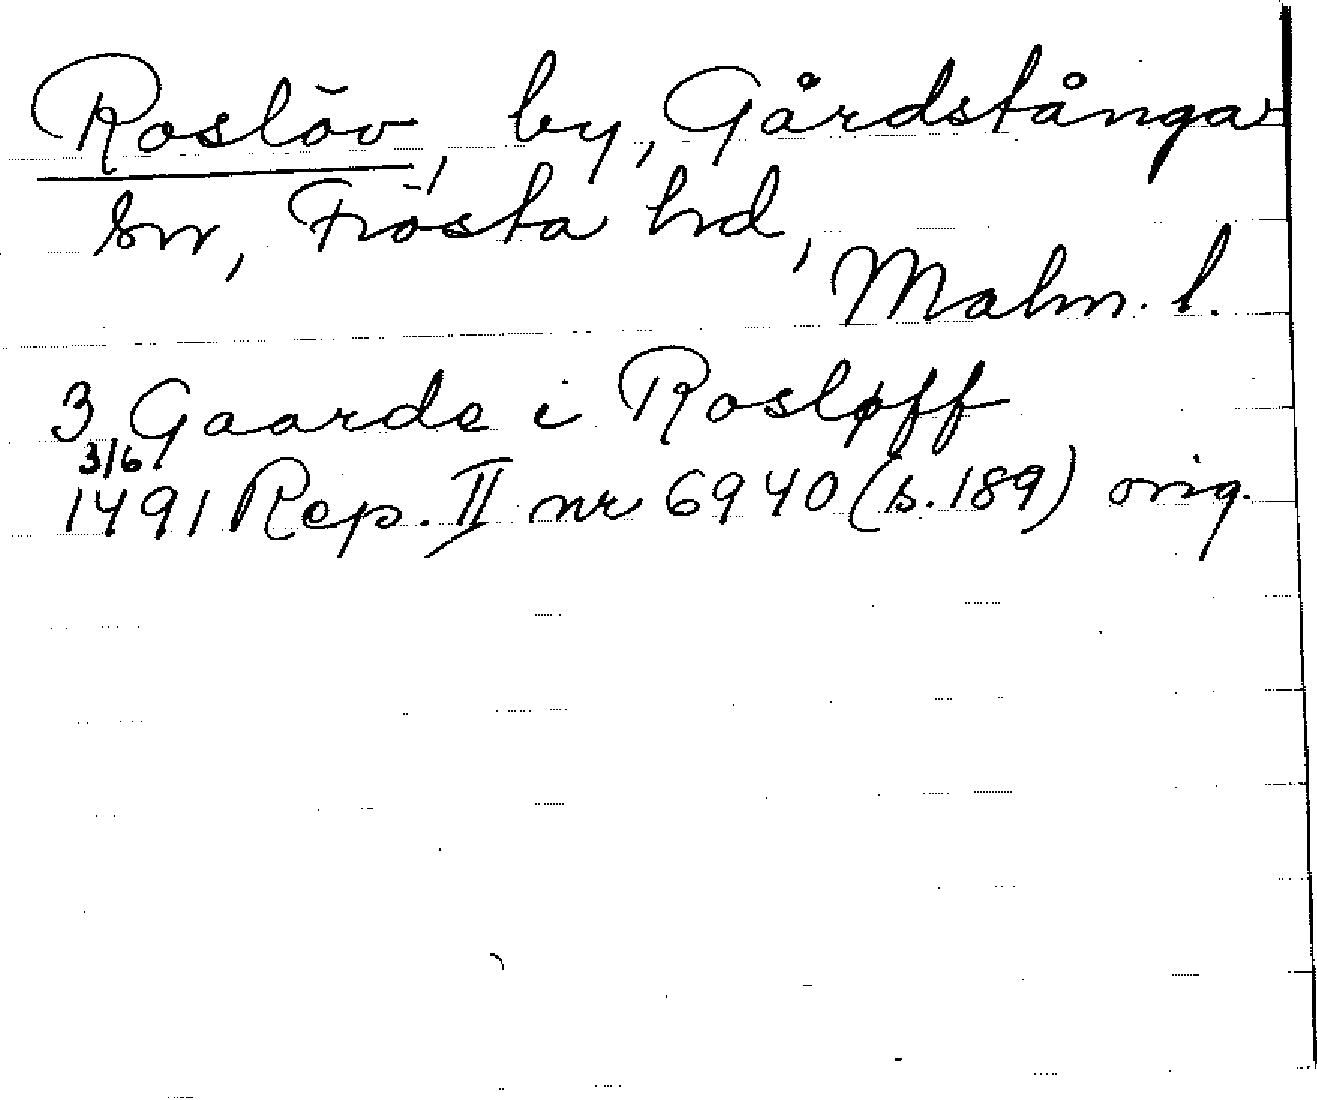 Roslöv, by, Gårdstånga
sn, Frosta hd,
Malm. l.
3 Gaarde i Rosløff
3/6
1491 Rep. II nr 6940 (s. 189) orig.